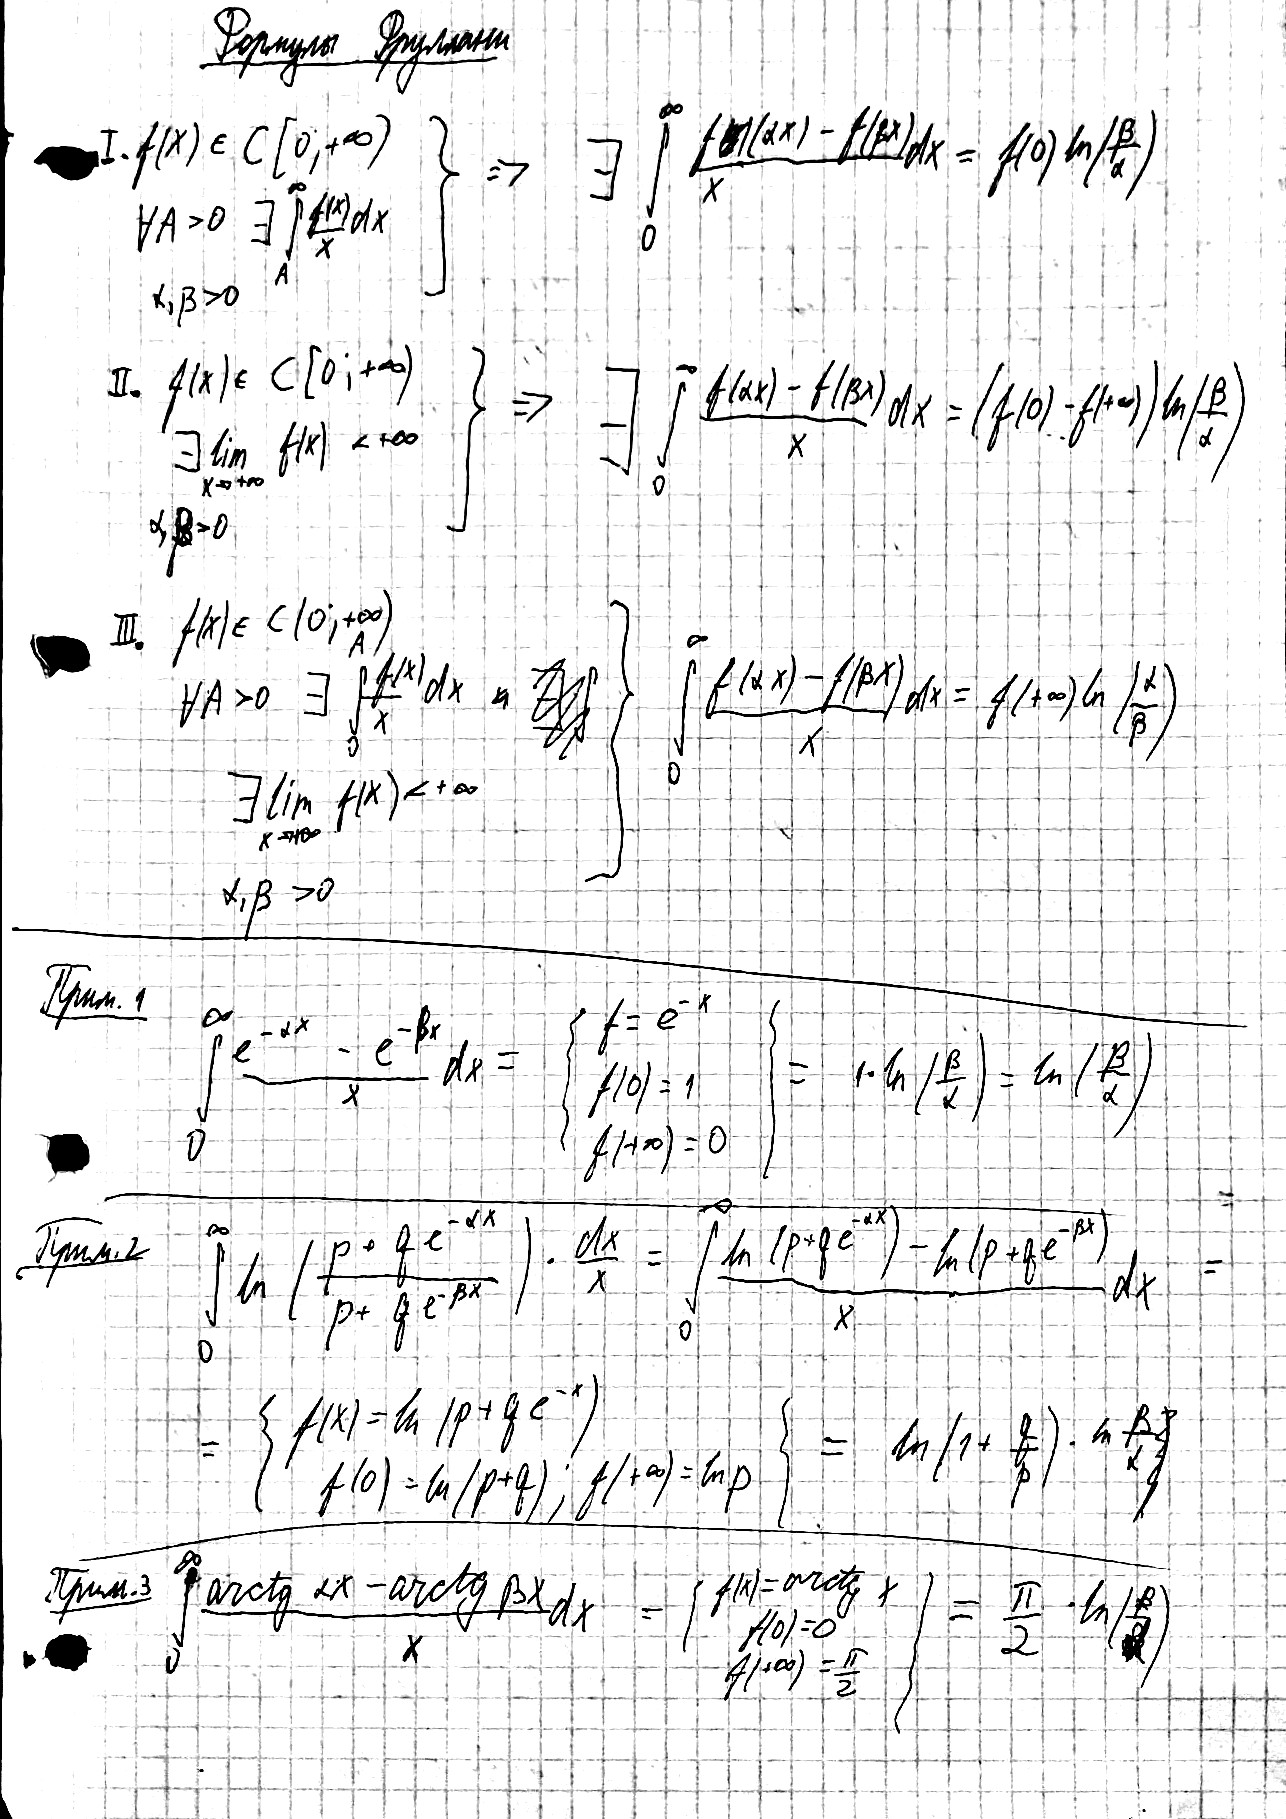 Формулы Фруллани
I. f(x) ∈ C[0; +∞)
∀A > 0 ∃ ∫_A^∞ f(x)/x dx
α, β > 0
} => ∃ ∫_0^∞ (f(αx) - f(βx))/x dx = f(0) ln(β/α)
II. f(x) ∈ C[0; +∞)
∃ lim_{x→+∞} f(x) < +∞
α, β > 0
} => ∃ ∫_0^∞ (f(αx) - f(βx))/x dx = (f(0) - f(+∞)) ln(β/α)
III. f(x) ∈ C(0; +∞)
∀A > 0 ∃ ∫_0^A f(x)/x dx и
∃ lim_{x→+∞} f(x) < +∞
α, β > 0
} ∫_0^∞ (f(αx) - f(βx))/x dx = f(+∞) ln(α/β)
Прим. 1
∫_0^∞ (e^{-αx} - e^{-βx})/x dx = { f = e^{-x}
f(0) = 1
f(+∞) = 0 } = 1·ln(β/α) = ln(β/α)
Прим. 2
∫_0^∞ ln((p + q e^{-αx})/(p + q e^{-βx})) · dx/x = ∫_0^∞ (ln(p + q e^{-αx}) - ln(p + q e^{-βx}))/x dx =
= { f(x) = ln(p + q e^{-x})
f(0) = ln(p + q); f(+∞) = ln p } = ln(1 + q/p) · ln β/α
Прим. 3
∫_0^∞ (arctg αx - arctg βx)/x dx = { f(x) = arctg x
f(0) = 0
f(+∞) = π/2 } = π/2 · ln(β/